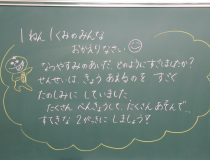 1ねん1くみのみんな
おかえりなさい
なつやすみのあいだ どのようにすごしましたか?
せんせいは、きょう あえるのを すごく
たのしみに していました。
たくさん べんきょうして、たくさん あそんで、
すてきな 2がっきに しましょうね